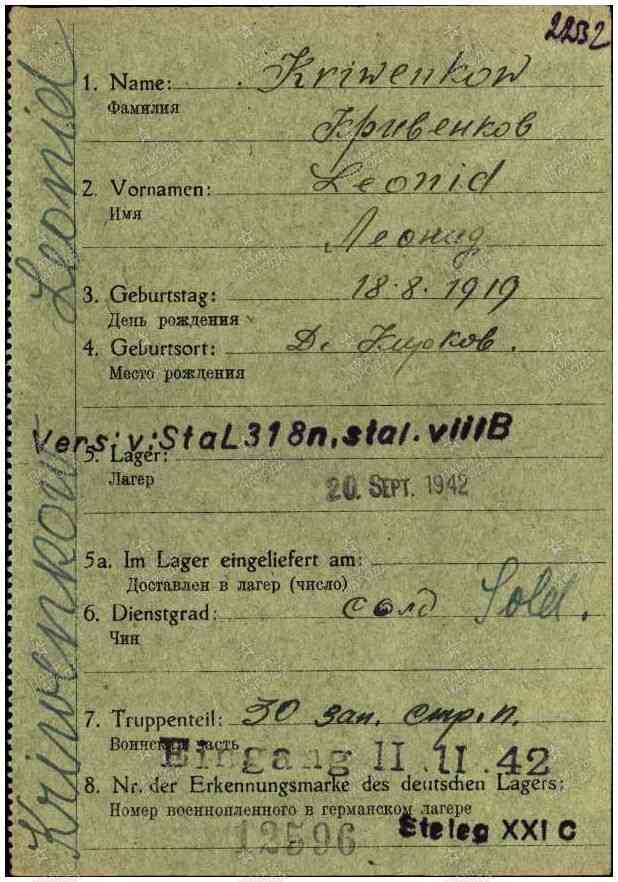 2232
1. Name: Kriwenkow
Фамилия
Кривенков
2. Vornamen: Leonid
Имя
Леонид
3. Geburtstag: 18.8.1919
День рождения
4. Geburtsort: Д. Клрков.
Место рождения
Vers: v: StaL318n, stal. vIIIB
5. Lager:
Лагер
20. SEPT. 1942
5a. Im Lager eingeliefert am:
Доставлен в лагер (число)
6. Dienstgrad: солд Sold.
Чин
7. Truppenteil: 30 зап. стр. п.
Воинская часть
Eingang II.II.42
8. Nr. der Erkennungsmarke des deutschen Lagers:
Номер военнопленного в германском лагере
12596 Steleg XXI C
Kriwenkow Leonid